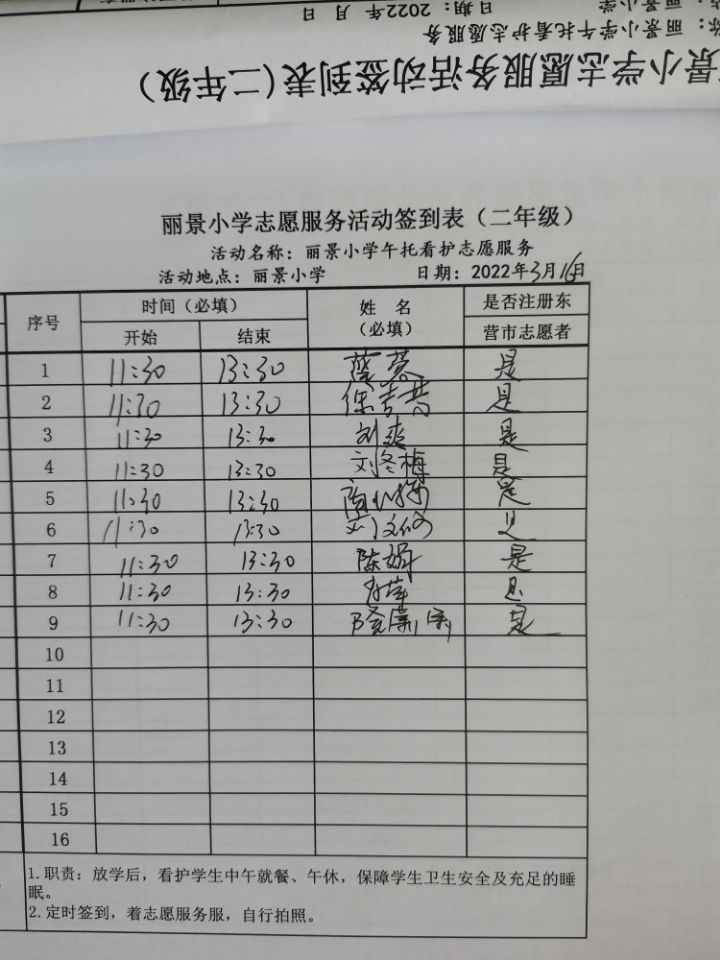 丽景小学 日期：2022年 月 日
丽景小学午托看护志愿服务
景小学志愿服务活动签到表（二年级）
丽景小学志愿服务活动签到表（二年级）
活动名称：丽景小学午托看护志愿服务
活动地点：丽景小学 日期：2022年3月16日
序号 时间（必填） 姓 名（必填） 是否注册东营市志愿者
开始 结束
1 11:30 13:30 是
2 11:30 13:30 是
3 11:30 13:30 刘爽 是
4 11:30 13:30 刘冬梅 是
5 11:30 13:30 是
6 11:30 13:30 是
7 11:30 13:30 陈娟 是
8 11:30 13:30 是
9 11:30 13:30 是
10
11
12
13
14
15
16
1.职责：放学后，看护学生中午就餐、午休，保障学生卫生安全及充足的睡
眠。
2.定时签到，着志愿服务服，自行拍照。